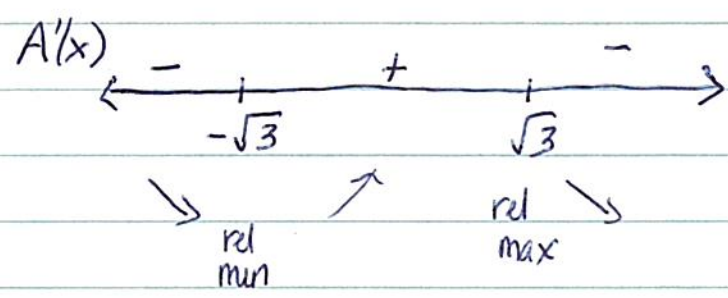 A'(x) − + −
−√3 √3
rel min
rel max